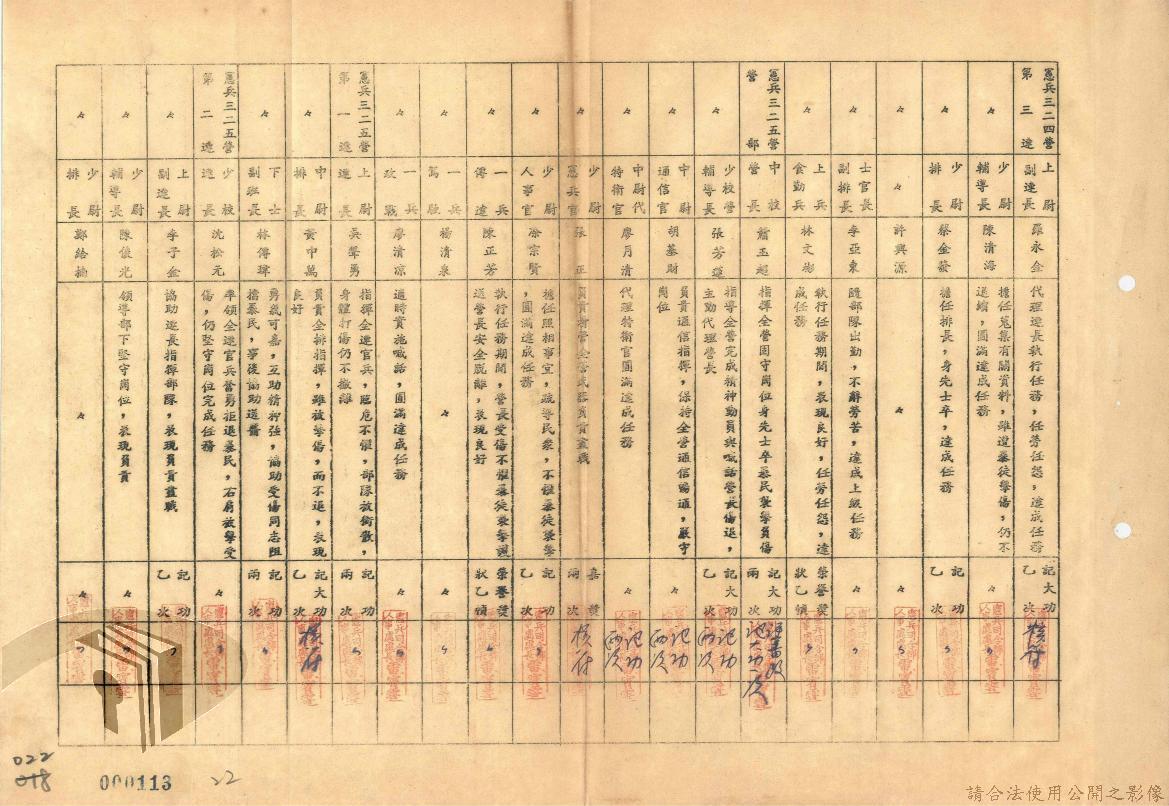 憲兵三二四營
第三連
上尉
副連長
羅永金
代理連長執行任務,任勞任怨,達成任務
記大功
乙次
核符
〃
少尉
輔導長
陳清海
擔任蒐集有關資料,雖遭暴徒擊傷,仍不
退縮,圓滿達成任務
〃
〃
〃
少尉
排長
蔡金發
擔任排長,身先士卒,達成任務
記功
乙次
〃
〃
〃
許興源
〃
〃
〃
士官長
副排長
李亞東
隨部隊出勤,不辭勞苦,達成上級任務
〃
〃
〃
上兵
食勤兵
林文彬
執行任務期間,表現良好,任勞任怨,達
成任務
榮譽獎
狀乙幀
〃
憲兵三二五營
營部
中校
營長
蕭玉超
指揮全營固守崗位身先士卒暴民襲擊負傷
記大功
兩次
記大功乙次
〃
少校營
輔導長
張芳蓮
指導全營完成精神動員與喊話營長傷退,
主動代理營長
記大功
乙次
記功
兩次
〃
中尉
通信官
胡基財
負責通信指揮,保持全營通信暢通,嚴守
崗位
〃
記功
兩次
〃
中尉代
特衛官
廖月清
代理特衛官圓滿達成任務
〃
記功
兩次
〃
少尉
憲兵官
張正
負責衛營全營武器負責盡職
嘉獎
兩次
核符
〃
少尉
人事官
徐宗賢
擔任照相事宜,疏導民眾,不懼暴徒襲擊
,圓滿達成任務
記功
乙次
〃
〃
一兵
傳達
陳正芳
執行任務期間,營長受傷不懼暴徒襲擊護
送營長安全脫離,表現良好
榮譽獎
狀乙幀
〃
〃
一兵
駕駛
楊清泉
〃
〃
〃
一兵
政戰
廖清凉
適時實施喊話,圓滿達成任務
〃
〃
憲兵三二五營
第一連
上尉
連長
吳聲勇
指揮全連官兵,臨危不懼,部隊被衝散,
身體打傷仍不撤離
記功
兩次
〃
〃
中尉
排長
黃中萬
負責全排指揮,雖被擊傷,而不退,表現
良好
記大功
乙次
核符
〃
下士
副班長
林傳璋
勇氣可嘉,互助精神強,協助受傷同志阻
擋暴民,事後協助送醫
記功
兩次
〃
憲兵三二五營
第二連
少校
連長
沈松元
率領全連官兵奮勇拒退暴民,右肩被擊受
傷,仍堅守崗位完成任務
〃
〃
〃
上尉
副連長
李子金
協助連長指揮部隊,表現負責盡職
記功
乙次
〃
〃
少尉
輔導長
陳俊光
領導部下堅守崗位,表現負責
〃
〃
〃
少尉
排長
鄭給楠
〃
〃
〃
022
018
000113
22
請合法使用公開之影像